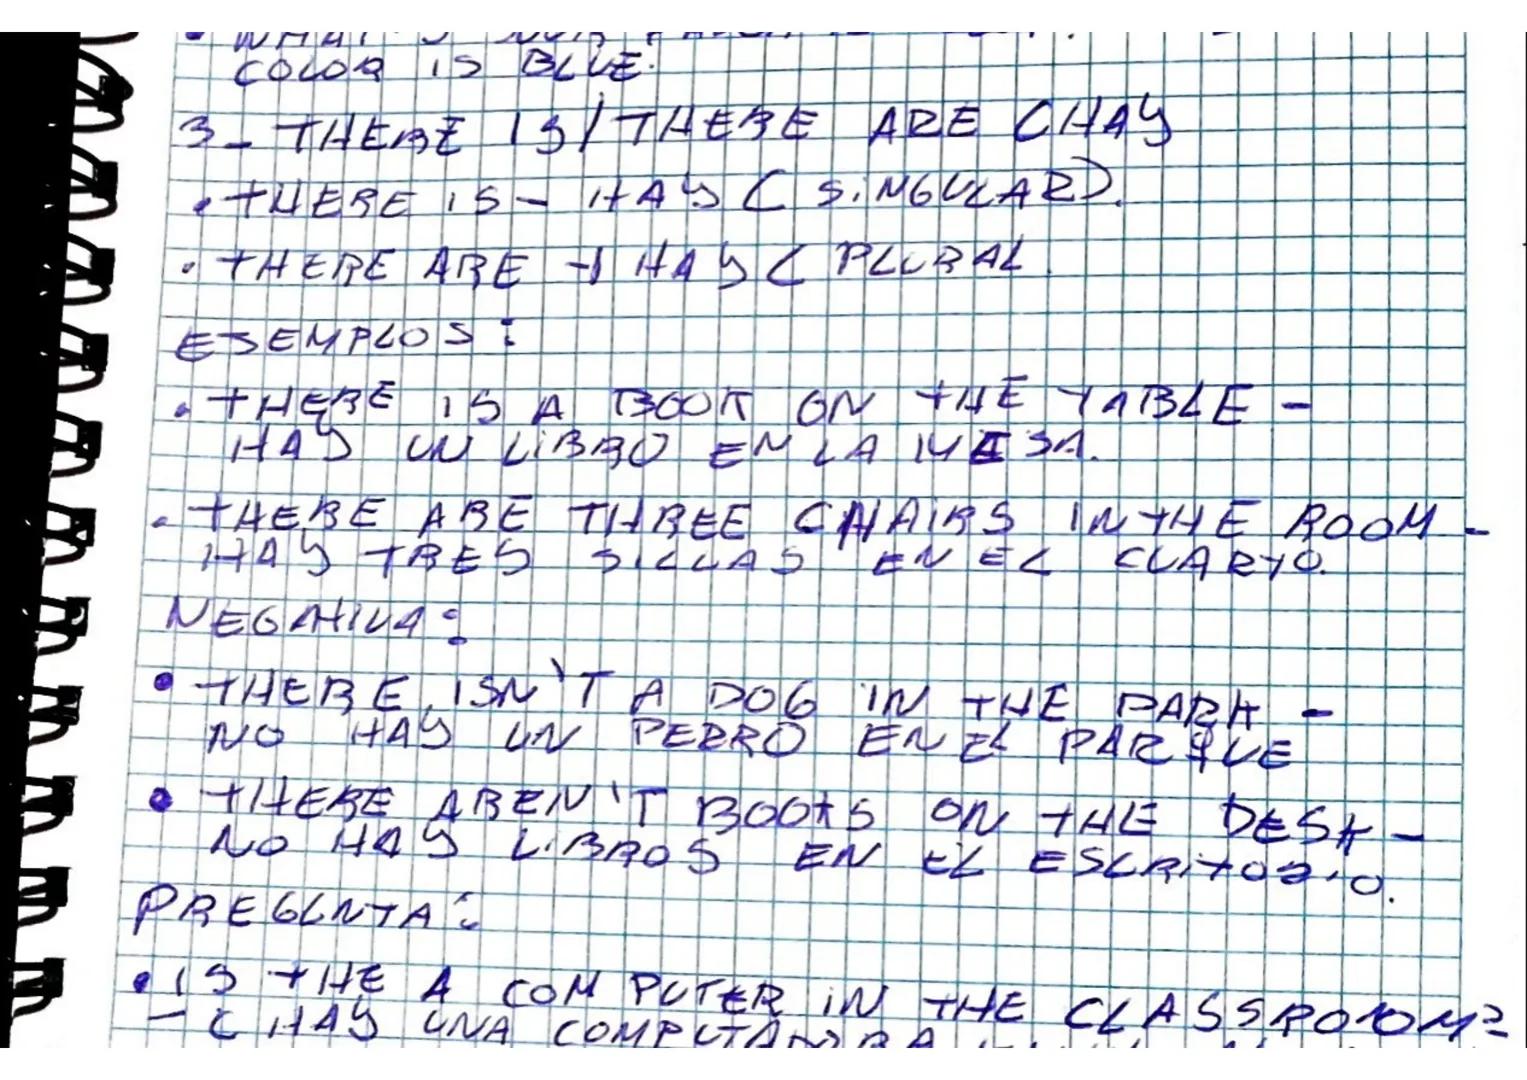 COLOR IS BLUE.
3- THERE IS/THERE ARE CHAY
• THERE IS - HAY ( SINGULAR).
• THERE ARE - HAY ( PLURAL.
ESEMPLOS:
• THERE IS A BOOK ON THE TABLE -
HAY UN LIBRO EN LA MESA.
• THERE ARE THREE CHAIRS IN THE ROOM -
HAY TRES SILLAS EN EL CUARTO.
NEGATIVA:
• THERE ISN'T A DOG IN THE PARK -
NO HAY UN PERRO EN EL PARQUE
• THERE AREN'T BOOKS ON THE DESK -
NO HAY LIBROS EN EL ESCRITORIO.
PREGUNTA:
• IS THE A COMPUTER IN THE CLASSROOM?
- ¿ HAY UNA COMPUTADORA